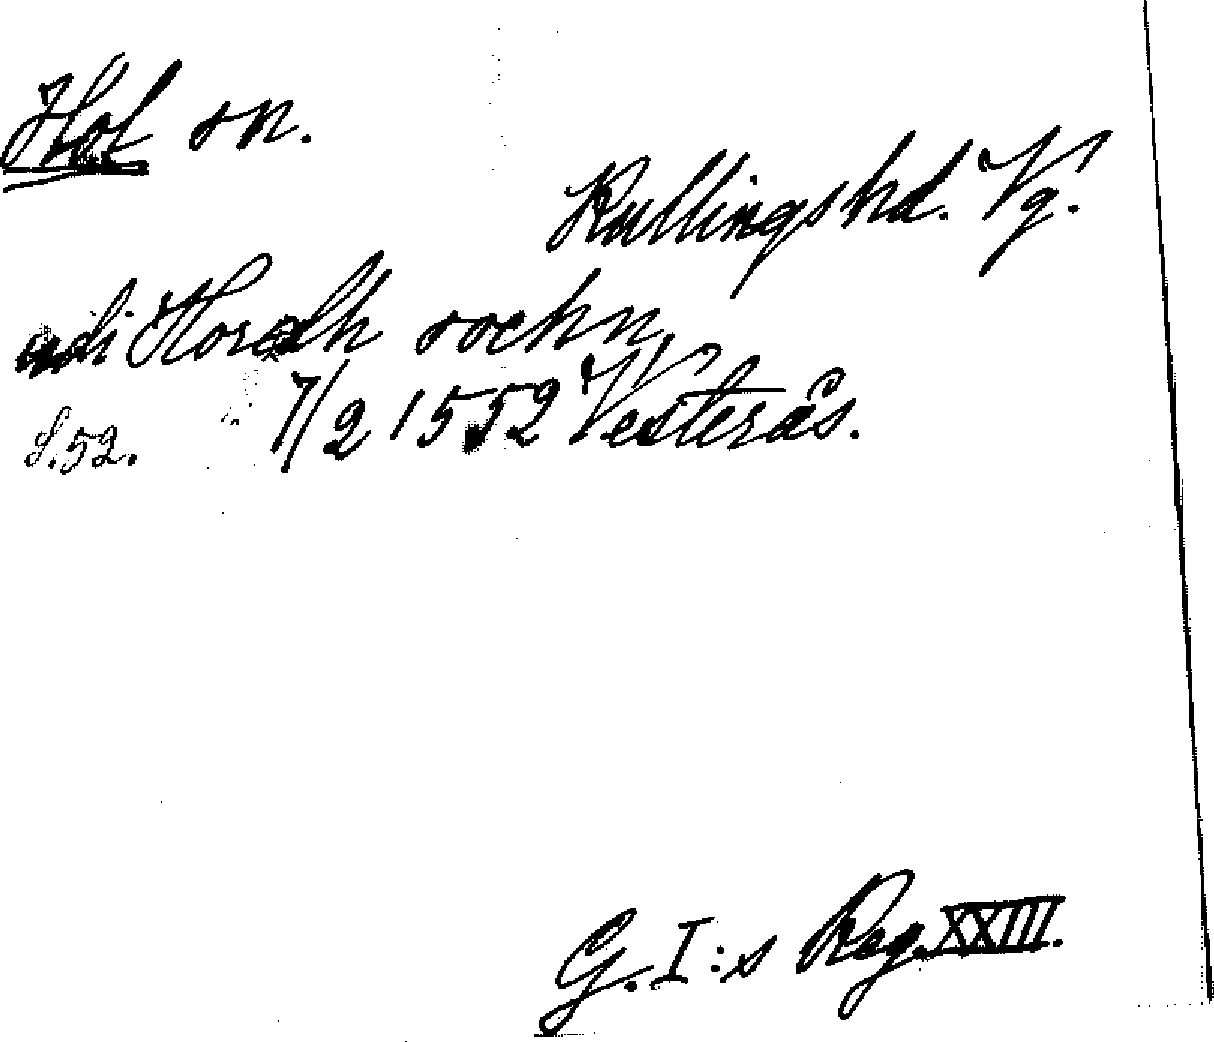 Hol sn.
Kullingshd. Vg.
udi Horelh sochn,
7/2 1552 Vesterås.
S. 52.
G. I:s Reg. XXIII.